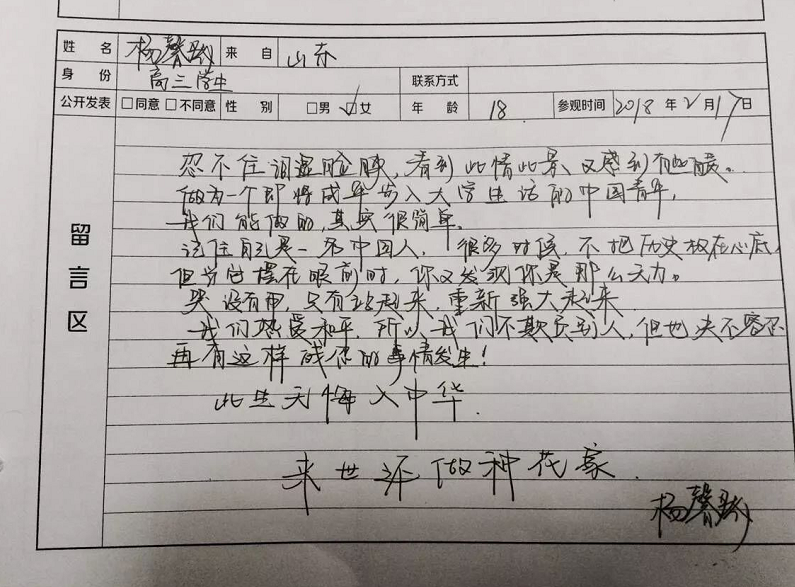 姓 名 杨馨 来 自 山东
身 份 高三学生 联系方式
公开发表 □同意 □不同意 性 别 □男 ☑女 年 龄 18 参观时间 2018 年 2 月 17 日
留言区
忍不住润湿脸颊,看到此情此景又感到有些酸。
做为一个即将成年步入大学生活的中国青年,
我们能做的,其实很简单.
记住自己是一名中国人. 很多时候,不把历史放在心底,
但当它摆在眼前时,你又发现你是那么无力。
哭没有用,只有站起来,重新强大起来
我们热爱和平,所以我们不欺负别人,但也决不容忍
再有这样的事情发生!
此生无悔入中华.
来世还做种花家.
杨馨